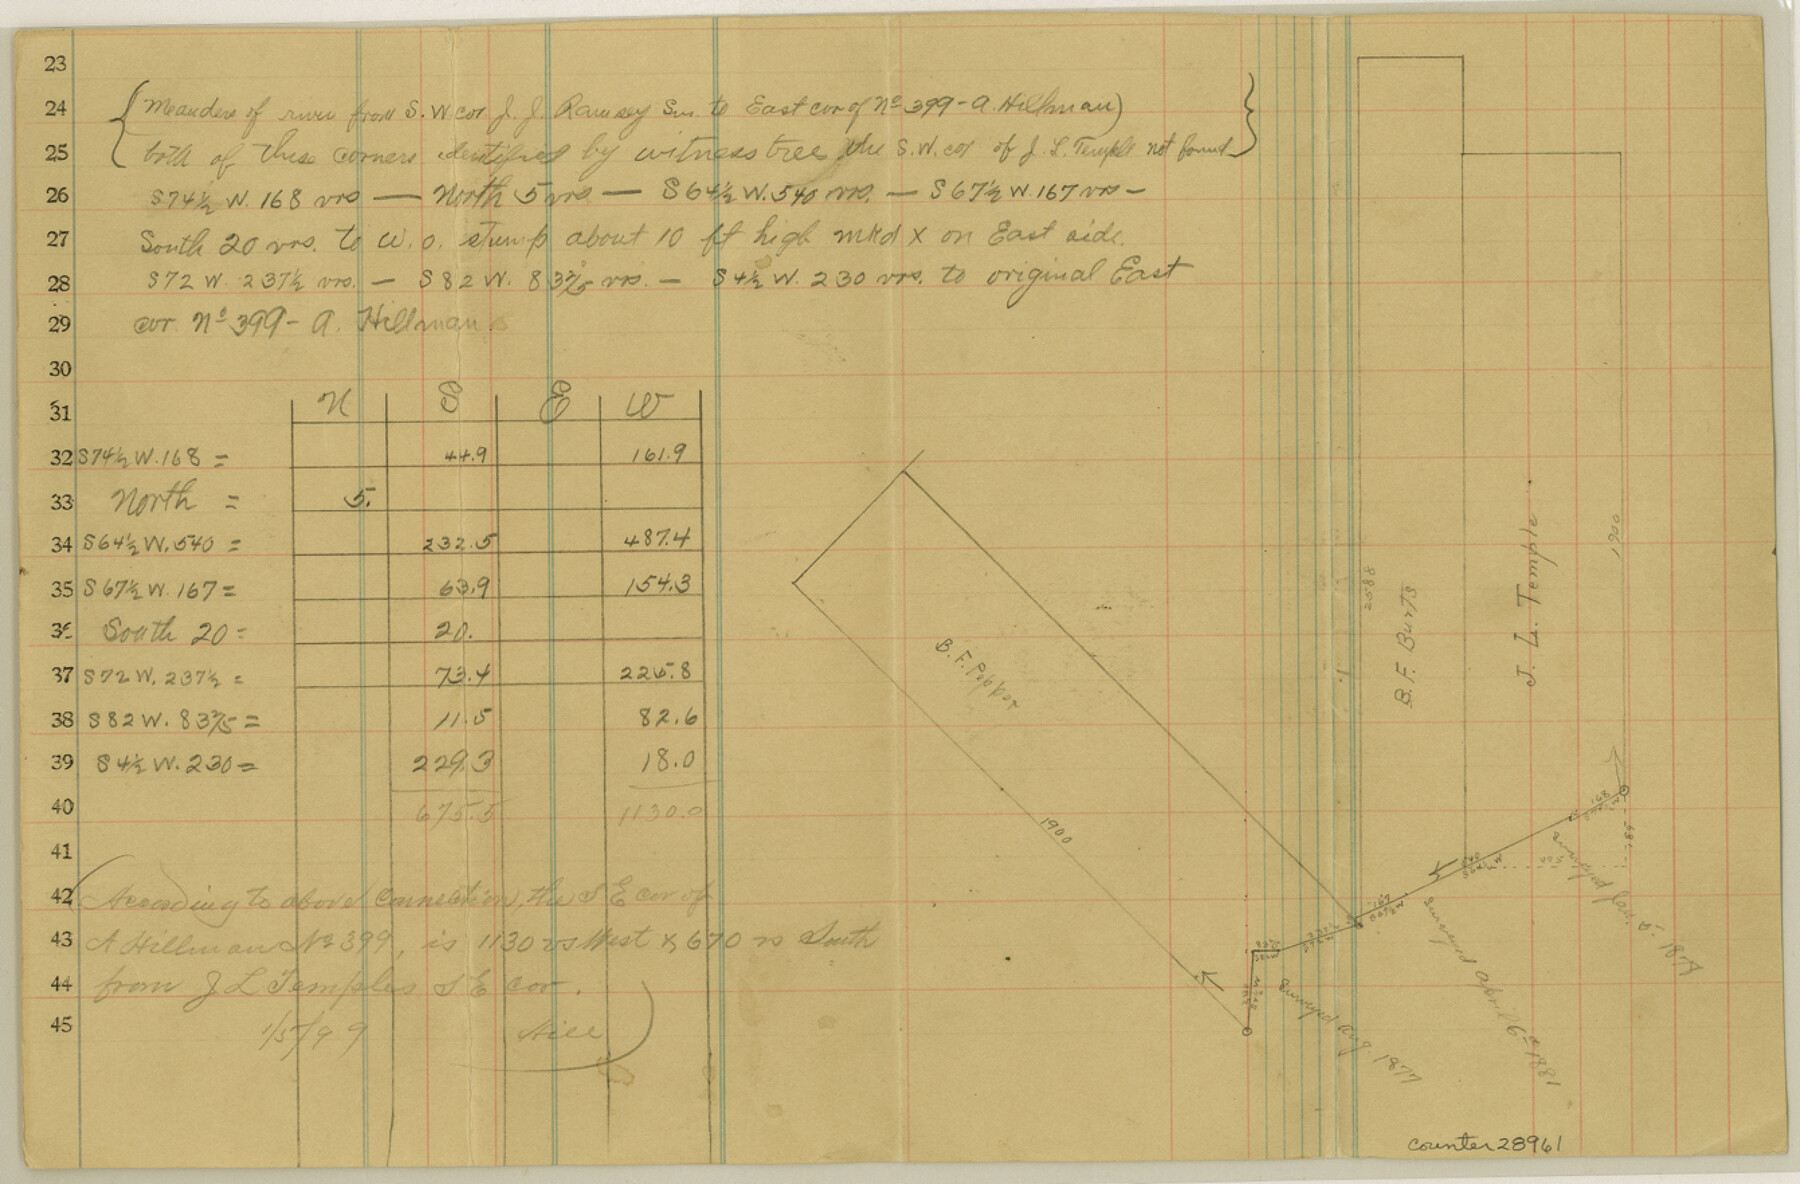 23
24 {Meanders of river from S.W cor J. J. Ramsey Sur. to East cor of No 399 - A. Hillman)
25 both of these corners identified by witness tree the S.W. cor of J. L. Temple not found}
26 S74½ W. 168 vrs — North 5 vrs — S64½ W. 540 vrs. — S67½ W. 167 vrs —
27 South 20 vrs. to W. O. stump about 10 ft high mkd X on East side.
28 S72 W. 237½ vrs. — S82 W. 83⅖ vrs. — S4½ W. 230 vrs. to original East
29 cor No 399 - A. Hillman.
30
31 N S E W
32 S74½ W. 168 = 44.9 161.9
33 North = 5.
34 S64½ W. 540 = 232.5 487.4
35 S67½ W. 167 = 63.9 154.3
36 South 20 = 20.
37 S72 W. 237½ = 73.4 225.8
38 S82 W. 83⅖ = 11.5 82.6
39 S4½ W. 230 = 229.3 18.0
40 675.5 1130.0
41
42 According to above connection, the S E cor of
43 A Hillman No 399, is 1130 vs West & 670 vs South
44 from J L Temples S E cor.
45 1/5/99 Hill
B. F. Pepper
1900
2588
B. F. Burts
J. L. Temple
1900
168
540
S64½W
167
surveyed Jan. 5 - 1878
surveyed April 6th 1881
surveyed Aug. 1877
counter 28961